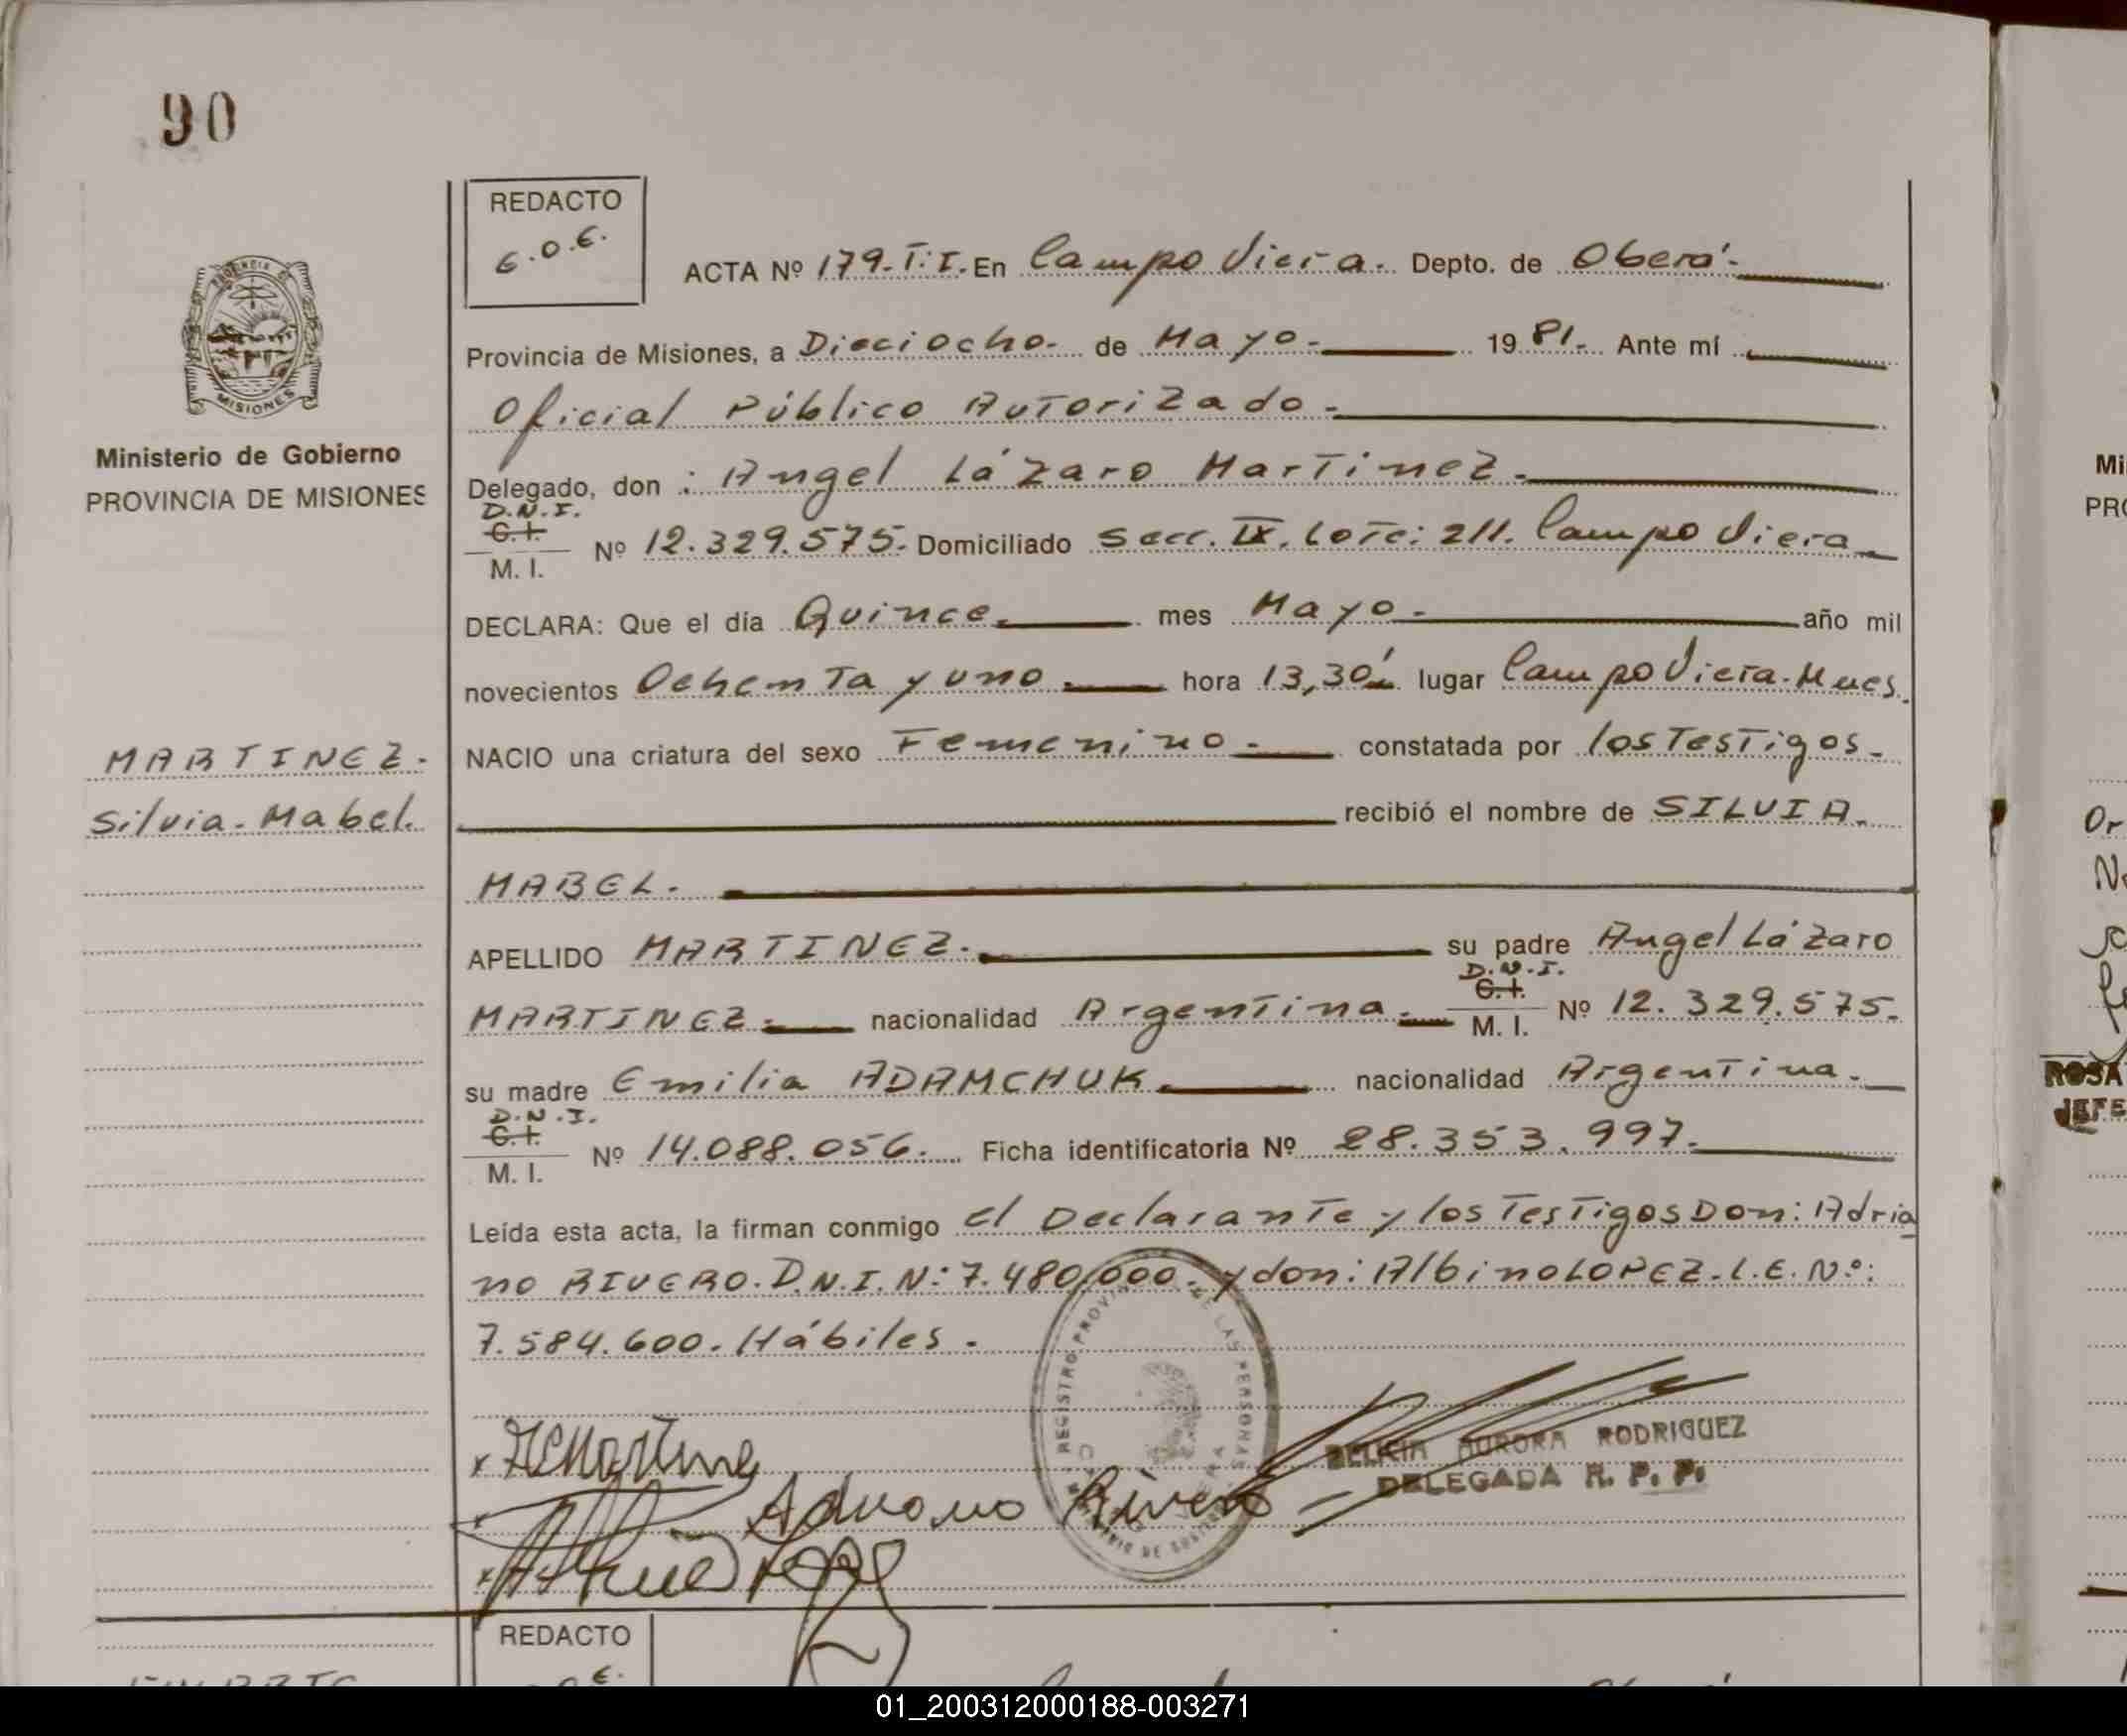 90
REDACTO
G.O.E.
ACTA Nº 179.T:I. En Campo Viera. Depto. de Oberá.
Provincia de Misiones, a Dieciocho. de Mayo. 1981. Ante mí
Oficial Público Autorizado.
Delegado, don : Angel Lázaro Martinez.
D.N.I.
C.I.
M. I. Nº 12.329.575. Domiciliado Secc. IX. Lote: 211. Campo Viera
DECLARA: Que el día Quince. mes Mayo. año mil
novecientos Ochenta y uno. hora 13,30' lugar Campo Viera. Mnes.
NACIO una criatura del sexo Femenino. constatada por los Testigos.
recibió el nombre de SILVIA.
MABEL.
APELLIDO MARTINEZ. su padre Angel Lázaro
D.N.I.
C.I.
MARTINEZ. nacionalidad Argentina. M. I. Nº 12.329.575.
su madre Emilia ADAMCHUK. nacionalidad Argentina.
D.N.I.
C.I.
M. I. Nº 14.088.056. Ficha identificatoria Nº 28.353.997.
Leída esta acta, la firman conmigo el Declarante y los Testigos Don: Adria
no RIVERO. D.N.I. N: 7.480.000. y don: Albino LOPEZ. L.E. Nº:
7.584.600. Hábiles.
Adriano Rivero
AURORA RODRIGUEZ
DELEGADA R. P. P.
REGISTRO PROVI DE LAS PERSONAS
PROVINCIA DE
MISIONES
Ministerio de Gobierno
PROVINCIA DE MISIONES
MARTINEZ.
Silvia. Mabel.
REDACTO
Mi
PRO
Or
ROSA
JEFE
01_200312000188-003271